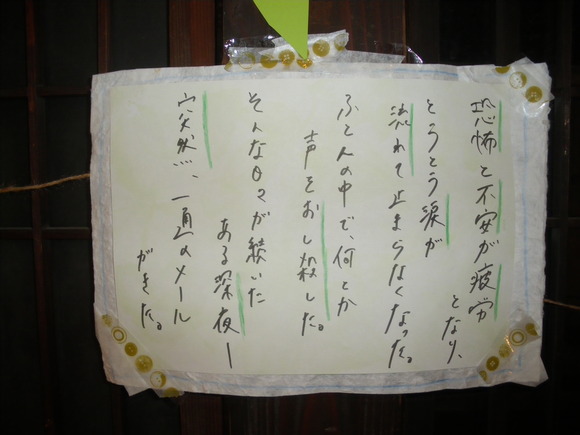 恐怖と不安が疲労
となり、
とうとう涙が
流れて止まらなくなった。
ふとんの中で、何とか
声をおし殺した。
そんな日々が続いた
ある深夜ー
突然、一通のメール
がきた。